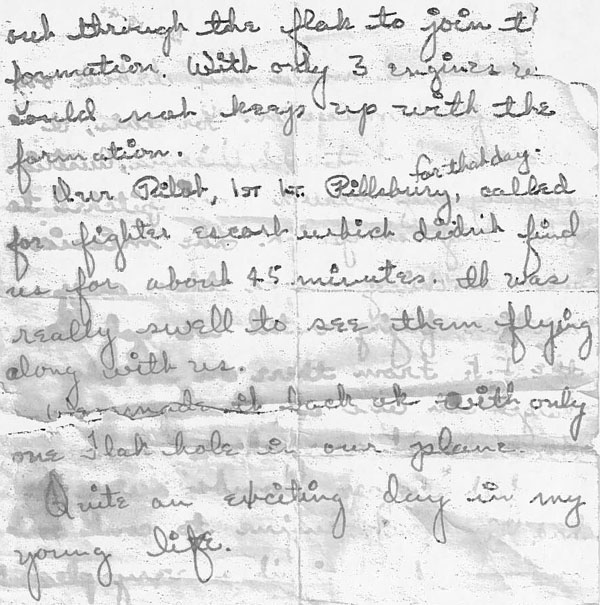 out through the flak to join t
formation. With only 3 engines we
could not keep up with the
formation.
for that day.
Our Pilot, 1ST Lt. Pillsbury, called
for fighter escort which didn't find
us for about 45 minutes. It was
really swell to see them flying
along with us.
We made it back ok with only
one flak hole in our plane.
Quite an exciting day in my
young life.